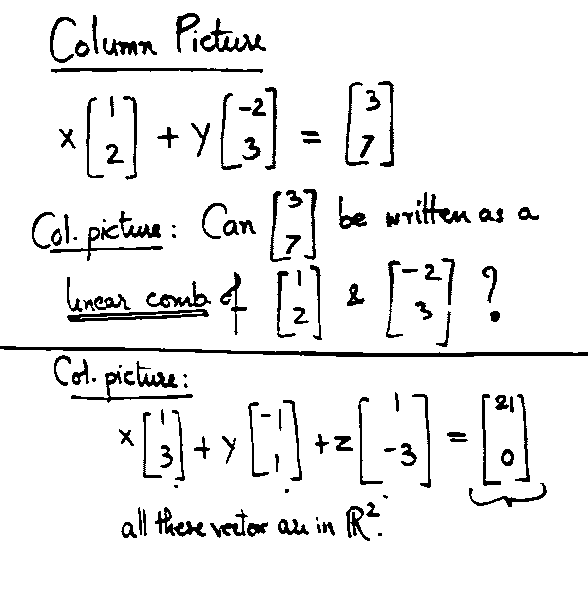 Column Picture
x [1 2] + y [-2 3] = [3 7]
Col. picture: Can [3 7] be written as a
linear comb. of [1 2] & [-2 3] ?
Col. picture:
x [1 3] + y [-1 1] + z [1 -3] = [21 0]
all these vector are in ℝ².